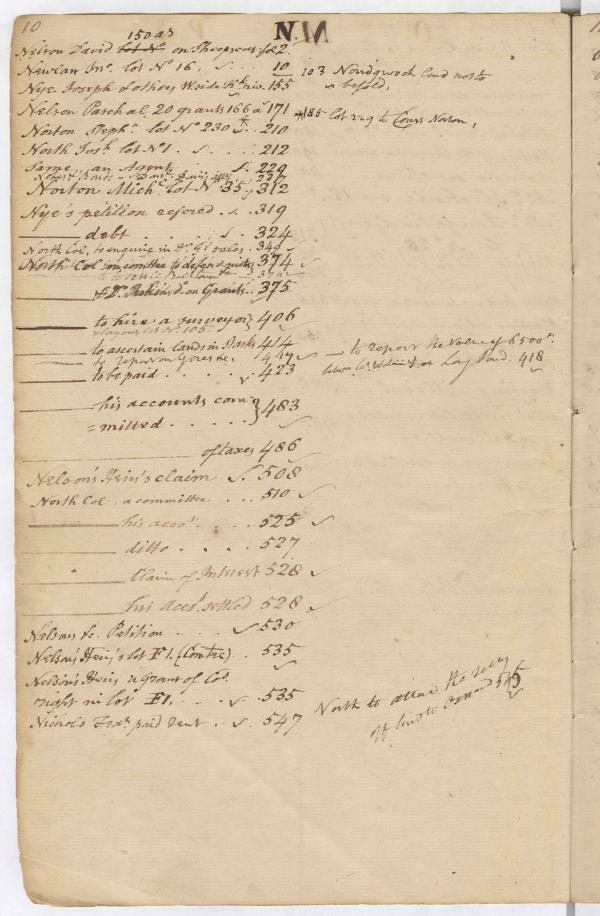 10
N.
150 as
Nelson David Lot No. on Sheepscut fol 2.
Newlan Jno. lot No 16, 10
103 Norridgwock land not to
Nye Joseph & others W side Kk. riv. 155
be sold,
Nelson Paschal 20 grants 166 a 171
185 Lot 229 to Const Norton,
Norton Steph. lot No 230 210
North Josh. lot No 1. 212
Same, an Agent 229
237
Norton Mich. Lot No 35, 312
Nye's petition refered 319
debt 324
North Col. to enquire in Dr. Gs sales. 349
North Col on comittee to defend suits 374
& Dr. Perkins do. on Grants 375
to hire a surveyor } 406
& lay out lot No. 105
to ascertain lands in 414
to report on 417
to report the value of 6500 as.
to be paid 423
Long Pond. 418
his accounts com= } 483
=mitted
of taxes 486
Nelson's Heirs claim 508
North Col. a committee 510
his acco. 525
ditto 527
Claim of Interest 528
his acco. settled 528
Nelsons &c. Petition 530
Nelson's Heirs lot F1. (Contee) 535
Nelson's Heirs a Grant of Cos.
right in lot F1, 535
Nichols Fras. paid rent 547
North to attend the
of land to 545